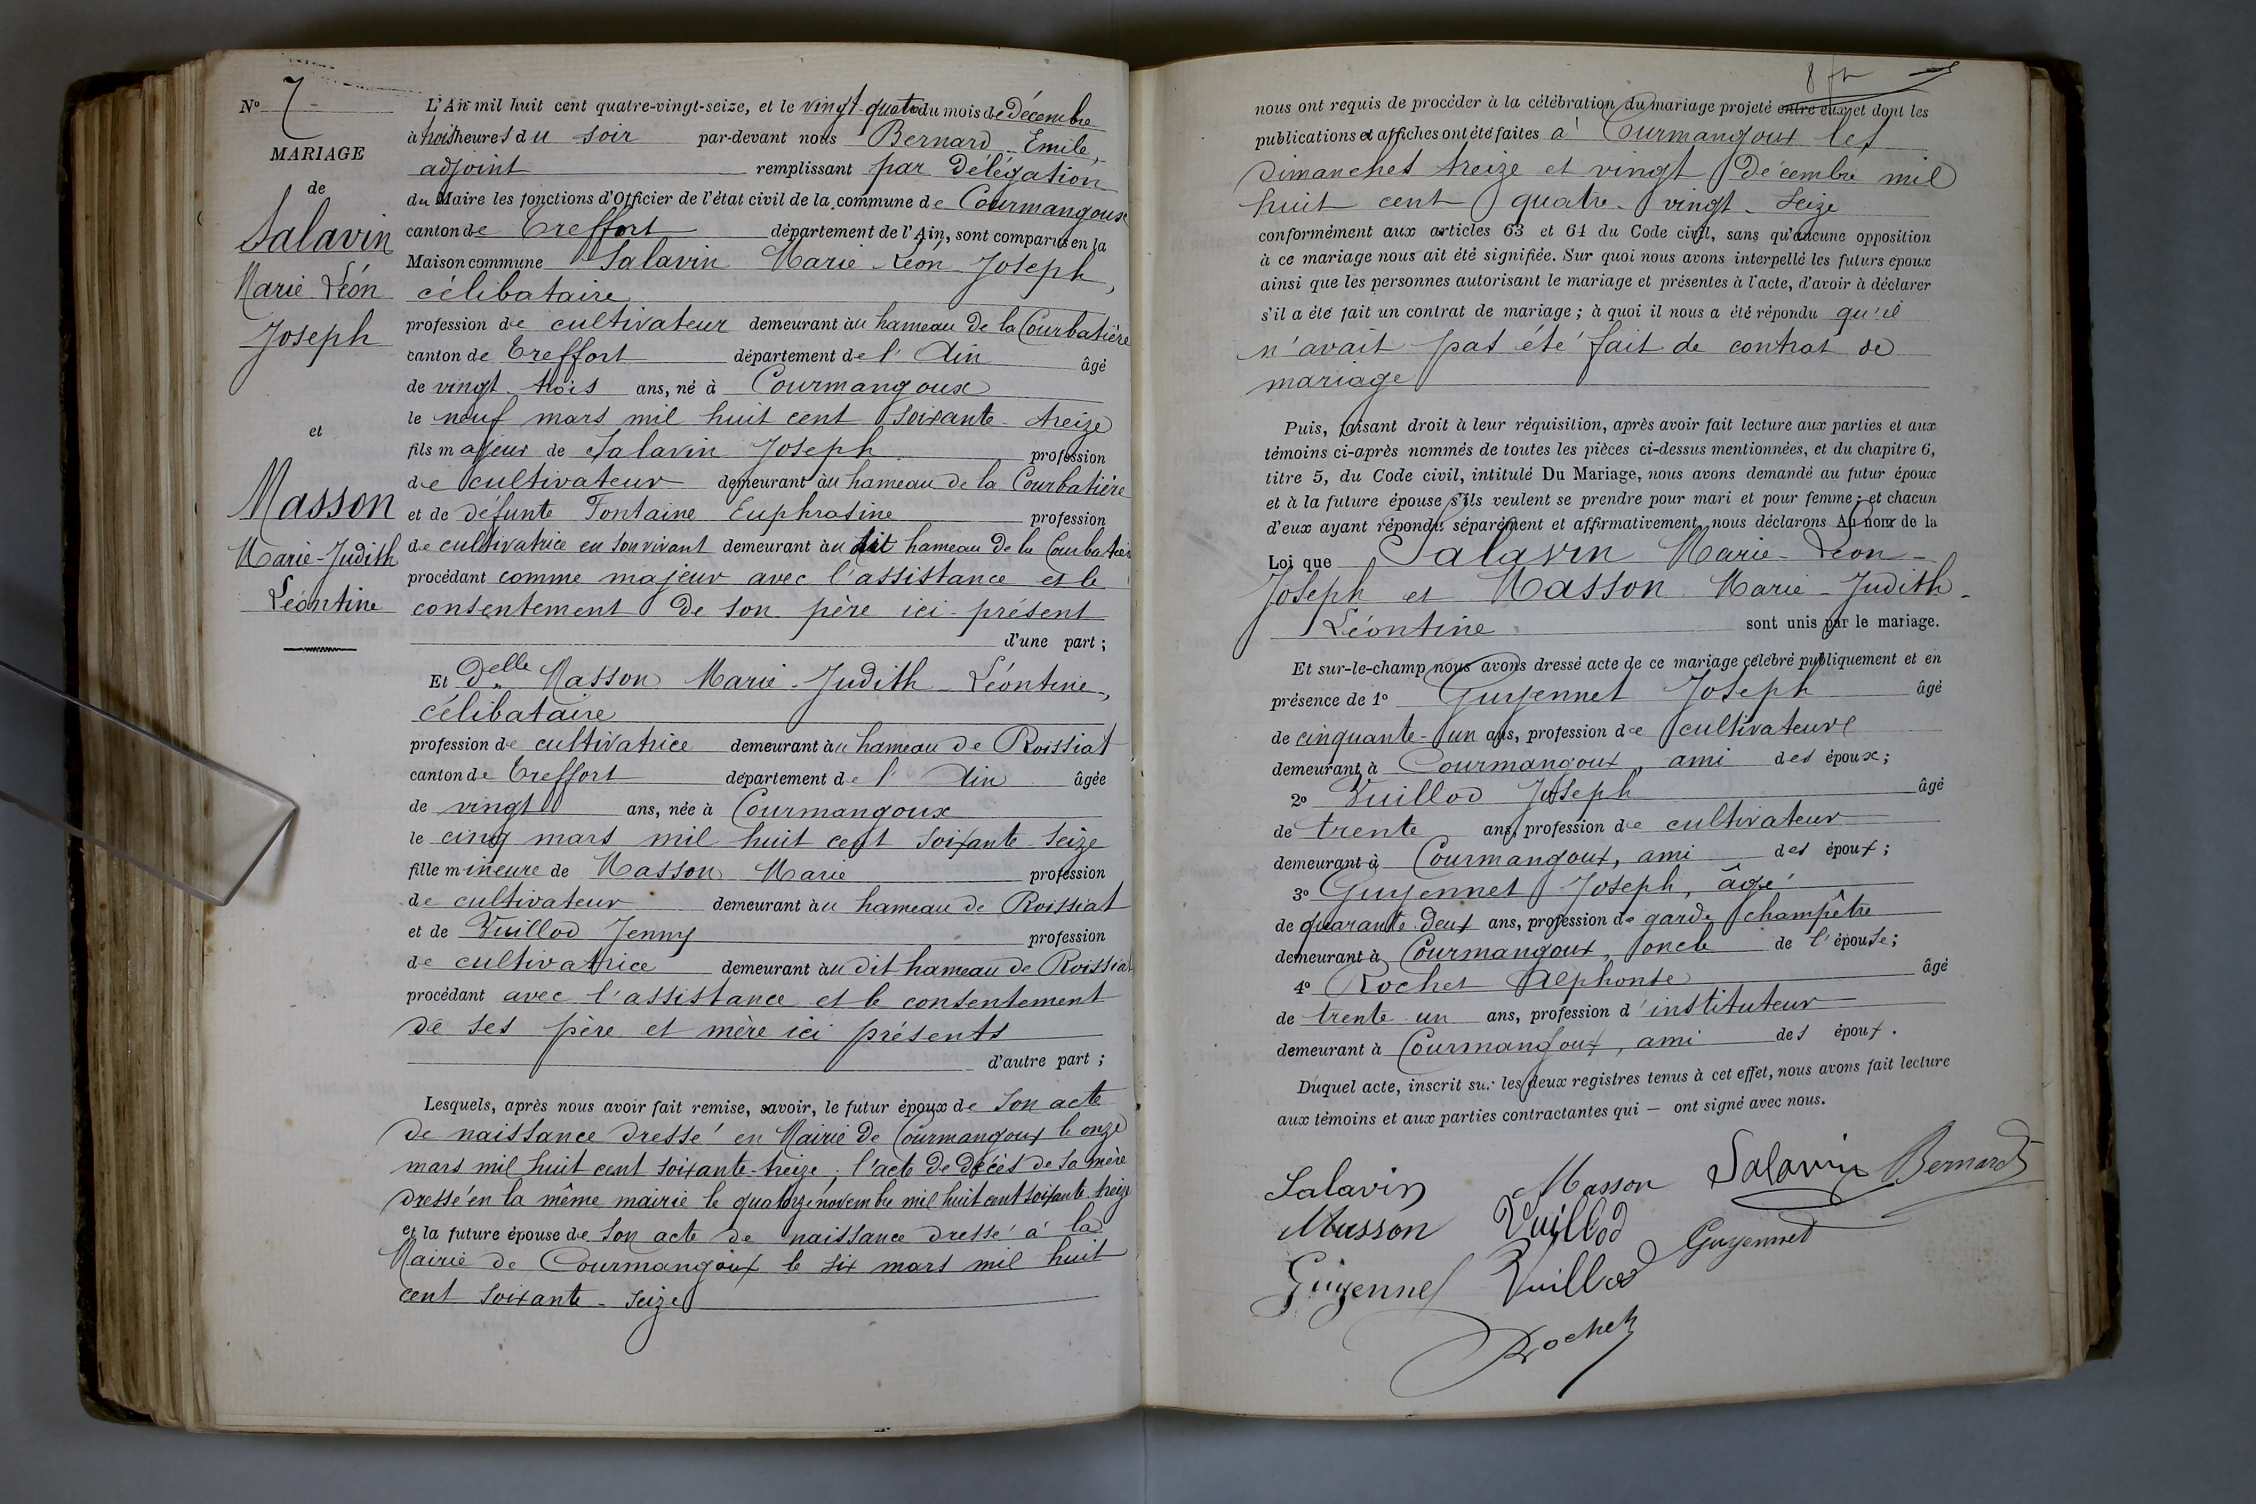 N° 7
MARIAGE
de
Salavin
Marie Léon
Joseph
et
Masson
Marie-Judith
Léontine
L'An mil huit cent quatre-vingt-seize, et le vingt-quatre du mois de Décembre
à trois heures du soir par-devant nous Bernard Emile,
adjoint remplissant par délégation
du Maire les fonctions d'Officier de l'état civil de la commune de Courmangoux
canton de Treffort département de l'Ain, sont comparus en la
Maison commune Salavin Marie Léon Joseph,
célibataire
profession de cultivateur demeurant au hameau de la Courbatière
canton de Treffort département de l'Ain âgé
de vingt-trois ans, né à Courmangoux
le neuf mars mil huit cent soixante-treize
fils majeur de Salavin Joseph profession
de cultivateur demeurant au hameau de la Courbatière
et de défunte Fontaine Euphrasine profession
de cultivatrice en son vivant demeurant au dit hameau de la Courbatière
procédant comme majeur avec l'assistance et le
consentement de son père ici présent
d'une part ;
Et Delle Masson Marie-Judith-Léontine,
célibataire
profession de cultivatrice demeurant au hameau de Roissiat
canton de Treffort département de l'Ain âgée
de vingt ans, née à Courmangoux
le cinq mars mil huit cent soixante-seize
fille mineure de Masson Marie profession
de cultivateur demeurant au hameau de Roissiat
et de Vuillod Jenny profession
de cultivatrice demeurant au dit hameau de Roissiat
procédant avec l'assistance et le consentement
de ses père et mère ici présents
d'autre part ;
Lesquels, après nous avoir fait remise, savoir, le futur époux de son acte
de naissance dressé en Mairie de Courmangoux le onze
mars mil huit cent soixante-treize ; l'acte de décès de sa mère
dressé en la même mairie le quatorze novembre mil huit cent soixante treize
et la future épouse de son acte de naissance dressé à la
Mairie de Courmangoux le six mars mil huit
cent soixante-seize
8
nous ont requis de procéder à la célébration du mariage projeté entre eux et dont les
publications et affiches ont été faites à Courmangoux les
dimanches treize et vingt Décembre mil
huit cent quatre-vingt-seize
conformément aux articles 63 et 64 du Code civil, sans qu'aucune opposition
à ce mariage nous ait été signifiée. Sur quoi nous avons interpellé les futurs époux
ainsi que les personnes autorisant le mariage et présentes à l'acte, d'avoir à déclarer
s'il a été fait un contrat de mariage ; à quoi il nous a été répondu qu'il
n'avait pas été fait de contrat de
mariage
Puis, faisant droit à leur réquisition, après avoir fait lecture aux parties et aux
témoins ci-après nommés de toutes les pièces ci-dessus mentionnées, et du chapitre 6,
titre 5, du Code civil, intitulé Du Mariage, nous avons demandé au futur époux
et à la future épouse s'ils veulent se prendre pour mari et pour femme ; et chacun
d'eux ayant répondu séparément et affirmativement, nous déclarons Au nom de la
Loi que Salavin Marie-Léon-
Joseph et Masson Marie-Judith-
Léontine sont unis par le mariage.
Et sur-le-champ nous avons dressé acte de ce mariage célébré publiquement et en
présence de 1° Guyennet Joseph âgé
de cinquante-un ans, profession de cultivateur
demeurant à Courmangoux, ami des époux ;
2° Vuillod Joseph âgé
de trente ans, profession de cultivateur
demeurant à Courmangoux, ami des époux ;
3° Guyennet Joseph, âgé
de quarante-deux ans, profession de garde champêtre
demeurant à Courmangoux, oncle de l'épouse ;
4° Rochet Alphonse âgé
de trente un ans, profession d'instituteur
demeurant à Courmangoux, ami des époux.
Duquel acte, inscrit sur les deux registres tenus à cet effet, nous avons fait lecture
aux témoins et aux parties contractantes qui — ont signé avec nous.
Salavin Masson Salavin Bernard
Masson Vuillod Guyennet
Guyennet Vuillod
Rochet